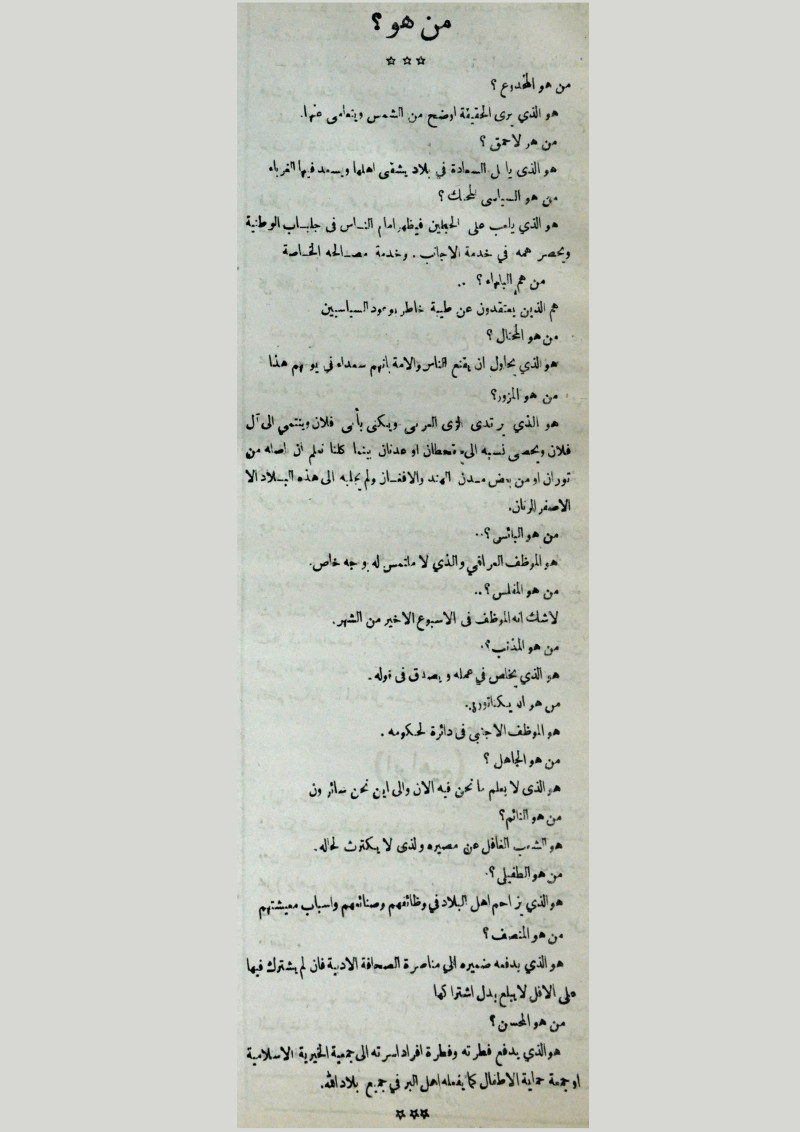 من هو ؟
☆ ☆ ☆
من هو المخدوع ؟
هو الذي يرى الحقيقة اوضح من الشمس ويتعامى عنها.
من هو لاحمق ؟
هو الذى يا ل السعادة في بلاد يشقى اهلها ويسعد فيها الغرباء
من هو السياسى المحنك ؟
هو الذي يلعب على الحبلين فيظهر امام الناس فى جلباب الوطنية
ويحصر همه في خدمة الاجانب . وخدمة مصالحه الخاصة
من هم البلهاء ؟ ..
هم الذين يعتقدون عن طيبة خاطر بوعود السياسيين
من هو المحتال ؟
هو الذي يحاول ان يقنع الناس والامة بانهم سعداء في يومهم هذا
من هو المزور؟
هو الذي يرتدى الزى العربى ويكنى بأبى فلان وينتمي الى آل
فلان ويحصى نسبه الى قحطان او عدنان بينما كلنا نعلم ان اصله من
توران او من بعض مدن الهند والافغان ولم يجلبه الى هذه البلاد الا
الاصفر الرنان.
من هو البائس ؟..
هو الموظف العراقي والذي لا ملتمس له بوجه خاص.
من هو المفلس ؟..
لاشك انه الموظف فى الاسبوع الاخير من الشهر.
من هو المذنب ؟.
هو الذي يخلص في عمله ويصدق فى قوله.
من هو
هو الموظف الاجنبي فى دائرة لحكومه .
من هو الجاهل ؟
هو الذى لا يعلم ما نحن فيه الان والى اين نحن سائرون
من هو النائم؟
هو الشعب الغافل عن مصيره ولذى لا يكترث لحاله.
من هو الطفيلي ؟.
هو الذي يزاحم اهل البلاد في وظائفهم وصنائعهم واسباب معيشتهم
من هو المنصف ؟
هو الذي يدفعه ضميره الى مناصرة الصحافة الادبية فان لم يشترك فيها
على الاقل لا يبلع بدل اشتراكها
من هو المحسن ؟
هو الذي يدفع فطرته وفطرة افراد اسرته الى جمعية الخيرية الاسلامية
او جمعة حماية الاطفال كما يفعله اهل البر في جميع بلاد الله.
☆☆☆